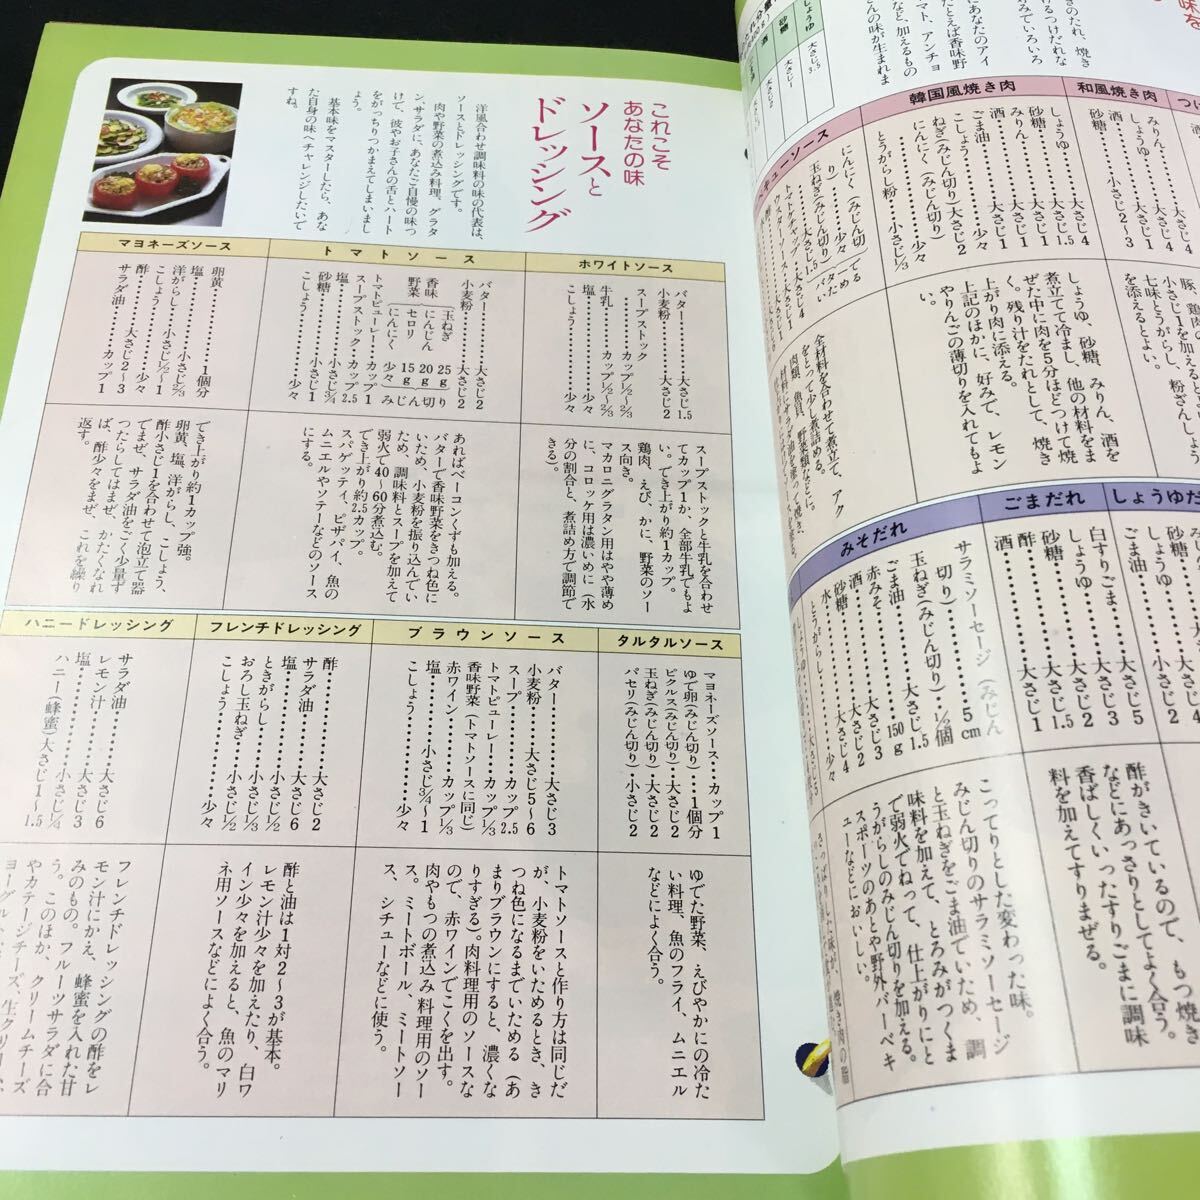 これこそ
あなたの味
ソースと
ドレッシング
洋風合わせ調味料の味の代表は、
ソースとドレッシングです。
肉や野菜の煮込み料理、グラタ
ン、サラダに、あなたご自慢の味つ
けで、彼やお子さんの舌とハート
をがっちりつかまえてしまいまし
ょう。
基本味をマスターしたら、あな
た自身の味へチャレンジしたいで
すね。
ホワイトソース
バター……大さじ1.5
小麦粉……大さじ2
スープストック
……カップ1/2〜2/3
牛乳……カップ1/2〜2/3
塩……少々
こしょう……少々
スープストックと牛乳を合わせ
てカップ1か、全部牛乳でもよ
い。でき上がり約1カップ。
鶏肉、えび、かに、野菜のソー
ス向き。
マカロニグラタン用はやや薄め
に、コロッケ用は濃いめに（水
分の割合と、煮詰め方で調節で
きる）。
トマトソース
バター……大さじ2
小麦粉……大さじ2
香味野菜
玉ねぎ 25g
にんじん 20g
セロリ 15g
にんにく 少々
みじん切り
トマトピューレー・カップ1
スープストック・カップ2.5
塩……小さじ3/4
砂糖……小さじ1
こしょう……少々
あればベーコンくずも加える。
バターで香味野菜をきつね色に
いため、小麦粉を振り込んでい
ため、調味料とスープを加えて
弱火で40〜60分煮込む。
でき上がり約2.5カップ。
スパゲッティ、ピザパイ、魚の
ムニエルやソテーなどのソース
にする。
マヨネーズソース
卵黄……1個分
塩……小さじ2/3
洋がらし……小さじ1/2〜1
こしょう……少々
酢……大さじ2〜3
サラダ油……カップ1
でき上がり約1カップ強。
卵黄、塩、洋がらし、こしょう、
酢小さじ1を合わせて泡立て器
でまぜ、サラダ油をごく少量ず
つたらしてはまぜ、かたくなれ
ば、酢少々をまぜ、これを繰り
返す。
タルタルソース
マヨネーズソース…カップ1
ゆで卵(みじん切り)…1個分
ピクルス(みじん切り)・大さじ2
玉ねぎ(みじん切り)・大さじ2
パセリ(みじん切り)・小さじ2
ゆでた野菜、えびやかにの冷た
い料理、魚のフライ、ムニエル
などによく合う。
ブラウンソース
バター……大さじ3
小麦粉……大さじ5〜6
スープ……カップ2.5
トマトピューレー・カップ1/3
香味野菜（トマトソースに同じ）
赤ワイン……カップ1/3
塩……小さじ3/4〜1
こしょう……少々
トマトソースと作り方は同じだ
が、小麦粉をいためるとき、き
つね色になるまでいためる（あ
まりブラウンにすると、濃くな
りすぎる）。肉料理用のソースな
ので、赤ワインでこくを出す。
肉やもつの煮込み料理用のソー
ス。ミートボール、ミートソー
ス、シチューなどに使う。
フレンチドレッシング
酢……大さじ2
サラダ油……大さじ6
塩……小さじ1/2
ときがらし……小さじ1/2
おろし玉ねぎ
……小さじ1/2
こしょう……少々
酢と油は1対2〜3が基本。
レモン汁少々を加えたり、白ワ
イン少々を加えると、魚のマリ
ネ用ソースなどによく合う。
ハニードレッシング
サラダ油……大さじ6
レモン汁……大さじ3
塩……小さじ1/4
ハニー（蜂蜜）大さじ1〜1.5
フレンチドレッシングの酢をレ
モン汁にかえ、蜂蜜を入れた甘
みのもの。フルーツサラダに合
う。このほか、クリームチーズ
やカテージチーズ、生クリーム、
和風焼き肉
しょうゆ……大さじ4
みりん……大さじ4
砂糖……小さじ2〜3
酒……大さじ1
韓国風焼き肉
しょうゆ……大さじ4
砂糖……大さじ1.5
みりん……大さじ1
酒……大さじ1
ごま油……大さじ1
こしょう……少々
ねぎ(みじん切り)大さじ2
にんにく(みじん切り)
……少々
とうがらし粉……小さじ1/3
しょうゆ、砂糖、みりん、酒を
煮立てて冷まし、他の材料をま
ぜた中に肉を5分ほどつけて焼
く。残り汁をたれとして、焼き
上がり肉に添える。
上記のほかに、好みで、レモン
やりんごの薄切りを入れてもよ
い。
全材料を合わせて煮立て、アク
をとって少し煮詰める。
ごまだれ
白すりごま…大さじ3
しょうゆ……大さじ5
砂糖……大さじ1.5
酢……大さじ2
酒……大さじ1
酢がきいているので、もつ焼き
などにあっさりとしてよく合う。
香ばしくいったすりごまに調味
料を加えてすりまぜる。
みそだれ
サラミソーセージ（みじん
切り）……5cm
玉ねぎ(みじん切り)・1/2個
ごま油……大さじ1.5
赤みそ……150g
酒……大さじ3
砂糖……大さじ2
水……大さじ4
とうがらし
こってりとした変わった味。
みじん切りのサラミソーセージ
と玉ねぎをごま油でいため、調
味料を加えて、とろみがつくま
で弱火でねって、仕上がりにと
うがらしのみじん切りを加える。
スポーツのあとや野外バーベキ
ューなどにおいしい。